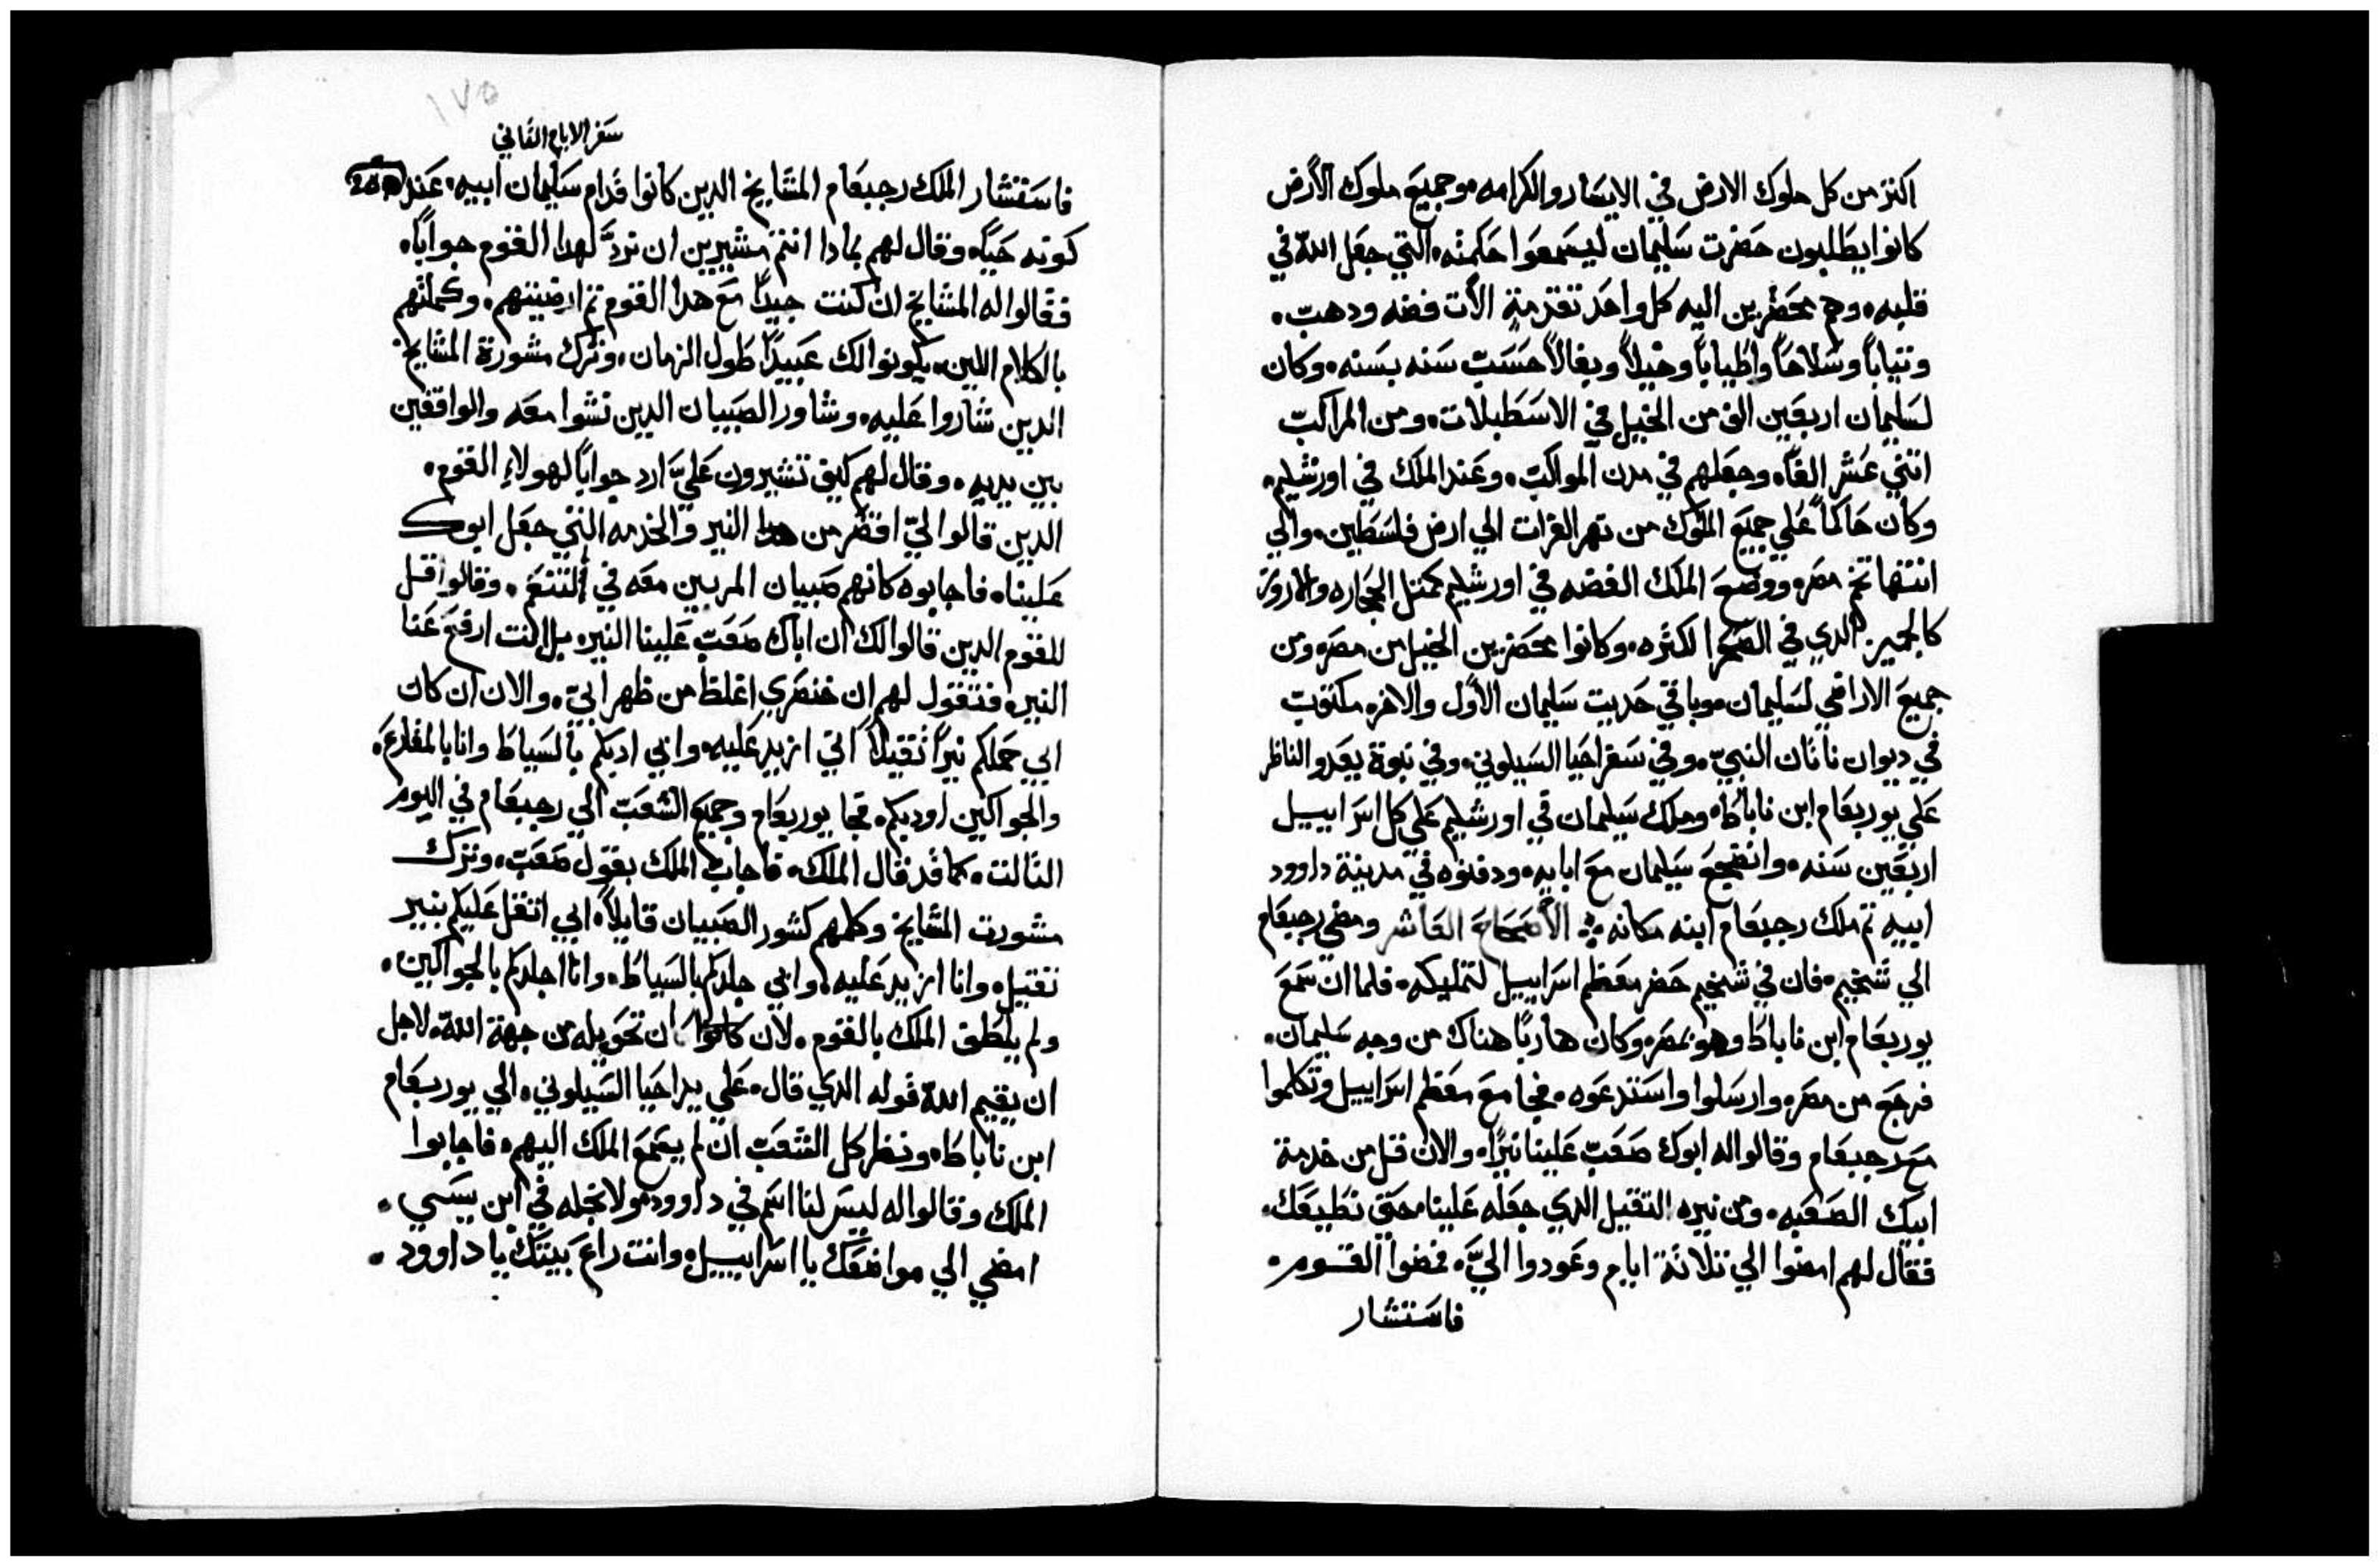 اكتر من كل ملوك الارض في الايسار والكرامه، وجميع ملوك الأرض
كانوا يطلبون حضرت سليمان ليسمعوا حكمته، التي جعل الله في
قلبه، وهم محضرين اليه كل واحد تقدمة الأت فضه ودهب،
وتياباً وسلاحاً واطياباً وخيلاً وبغالاً حسب سنه بسنه، وكان
لسليمان اربعين الف من الخيل في الاسطبلات، ومن المراكب
اتني عشر الفاً، وجعلهم في مدن المواكب، وعند الملك في اورشليم،
وكان حاكماً علي جميع الملوك من نهر الفرات الي ارض فلسطين، والي
انتها تخم مصر، ووضع الملك الفضه في اورشليم كمتل الحجاره والارز
كالجميز الدي في الصحرا لكتره، وكانوا محضرين الخيل من مصر، ومن
جميع الاراضي لسليمان، وباقي حديت سليمان الأول والاخر، مكتوب
في ديوان ناتان النبي، وفي سفر احيا السيلوني، وفي نبوة يعدو الناظر
علي يوربعام ابن ناباط، وملك سليمان في اورشليم علي كل اسراييل
اربعين سنه، وانضجع سليمان مع ابايه، ودفنوه في مدينة داوود
ابيه تم ملك رجبعام ابنه مكانه الأصحاح العاشر ومضي رجبعام
الي شخيم، فان في شخيم حضر معظم اسراييل لتمليكه، فلما ان سمع
يوربعام ابن ناباط وهو بمصر، وكان هارباً هناك من وجه سليمان،
فرجع من مصر، وارسلوا واستدعوه، فجا مع معظم اسراييل وتكلموا
مع رجبعام وقالوا له ابوك صعب علينا نيراً، والان قل من خدمة
ابيك الصعبه، ومن نيره التقيل الدي جعله علينا، حتي نطيعك،
فقال لهم امضوا الي تلاتة ايام وعودوا اليَّ، فمضوا القوم،
فاستشار
١٧٥
سفر الايام التاني
فاستشار الملك رجبعام المشايخ الدين كانوا قدام سليمان ابيه، عند
كونه حياً، وقال لهم بمادا انتم مشيرين ان نردَّ لهدا القوم جواباً،
فقالوا له المشايخ ان كنت جيداً مع هدا القوم تم ارضيتهم، وكلمتهم
بالكلام اللين، يكونوا لك عبيداً طول الزمان، وترك مشورة المشايخ
الدين شاروا عليه، وشاور الصبيان الدين نشوا معه والواقفين
بين يديه، وقال لهم كيف تشيرون عليَّ ارد جواباً لهولاء القوم،
الدين قالوا ليّ اقصر من هدا النير والخدمه التي جعل ابوك
علينا، فاجابوه كانهم صبيان المربين معه في التنعم، وقالوا قل
للقوم الدين قالوا لك ان اباك صعب علينا النير، بل انت ارفع عنا
النير، فتقول لهم ان خنصري اغلظ من ظهر ابي، والان ان كان
ابي حملكم نيراً تقيلاً اني ازيد عليه، وابي ادبكم بالسياط وانا بالمقارع،
والجواكين اودبكم، فجا يوربعام وجميع الشعب الي رجبعام في اليوم
التالت، كما قد قال الملك، فاجاب الملك بقول صعب، وترك
مشورت المشايخ وكلمهم كشور الصبيان قايلاً، ابي اتقل عليكم بنير
تقيل، وانا ازيد عليه، وابي جلدكم بالسياط، وانا اجلدكم بالجواكين،
ولم يلطف الملك بالقوم، لان ان تحويله من جهة الله، لاجل
ان يقيم الله قوله الدي قال، علي يد احيا السيلوني، الي يوربعام
ابن ناباط، ونظر كل الشعب ان لم يسمع الملك اليهم، فاجابوا
الملك وقالوا له ليس لنا اسم في داوود، ولا نجله في ابن يسي،
امضي الي مواضعك يا اسراييل، وانت راع بيتك يا داوود،